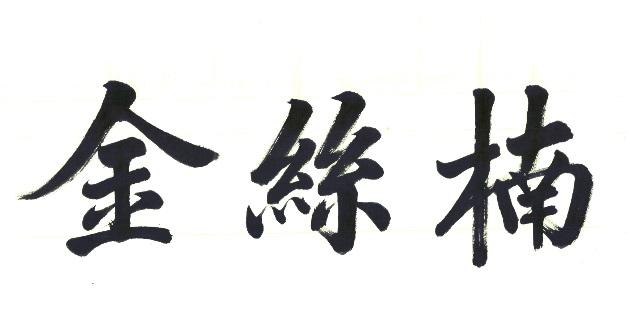 金絲楠